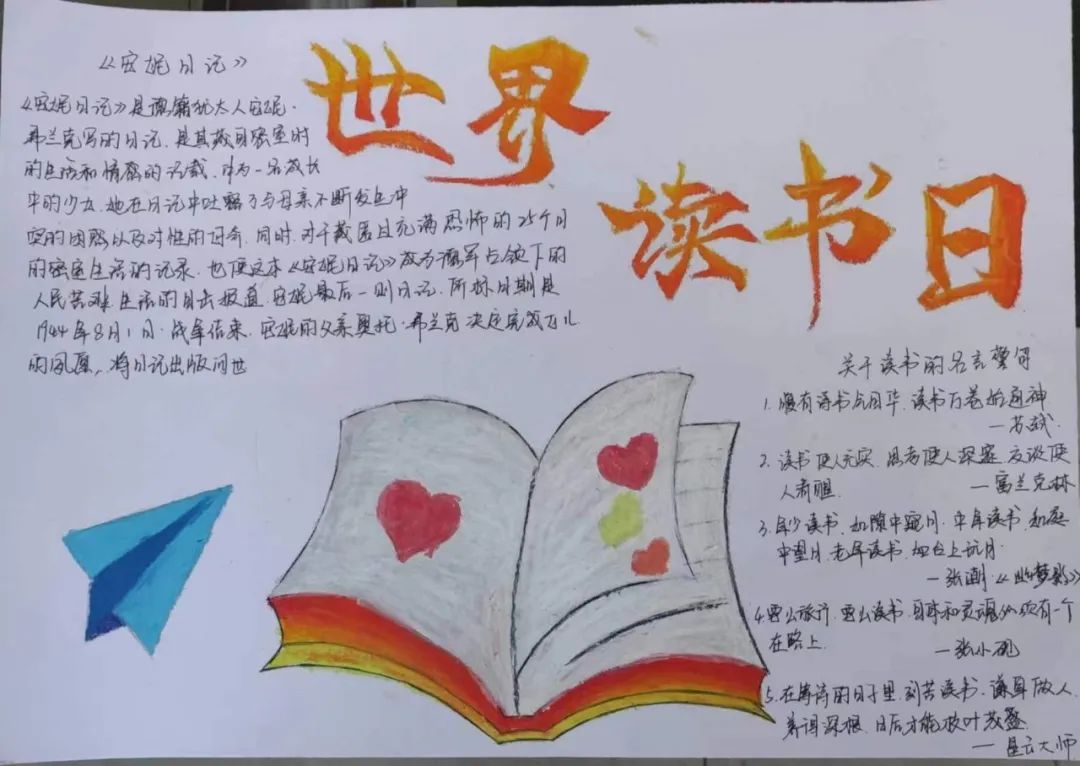 世界
读书日
《安妮日记》
《安妮日记》是德籍犹太人安妮·
弗兰克写的日记，是其藏匿密室时
的生活和情感的记载，作为一名成长
中的少女，她在日记中吐露了与母亲不断发生冲
突的困惑以及对性的好奇，同时，对于藏匿且充满恐怖的25个月
的密室生活的记录，也使这本《安妮日记》成为德军占领下的
人民苦难生活的目击报道，安妮最后一则日记，所标日期是
1944年8月1日，战争结束，安妮的父亲奥托·弗兰克决定完成女儿
的夙愿，将日记出版问世
关于读书的名言警句
1. 腹有诗书气自华，读书万卷始通神
—苏轼
2. 读书使人充实，思考使人深邃，交谈使
人清醒。
—富兰克林
3. 年少读书，如隙中窥月，中年读书，如庭
中望月，老年读书，如台上玩月。
—张潮《幽梦影》
4. 要么旅行，要么读书，身体和灵魂必须有一个
在路上
—张小砚
5. 在等待的日子里，刻苦读书，谦卑做人，
养得深根，日后才能枝叶茂盛
—星云大师